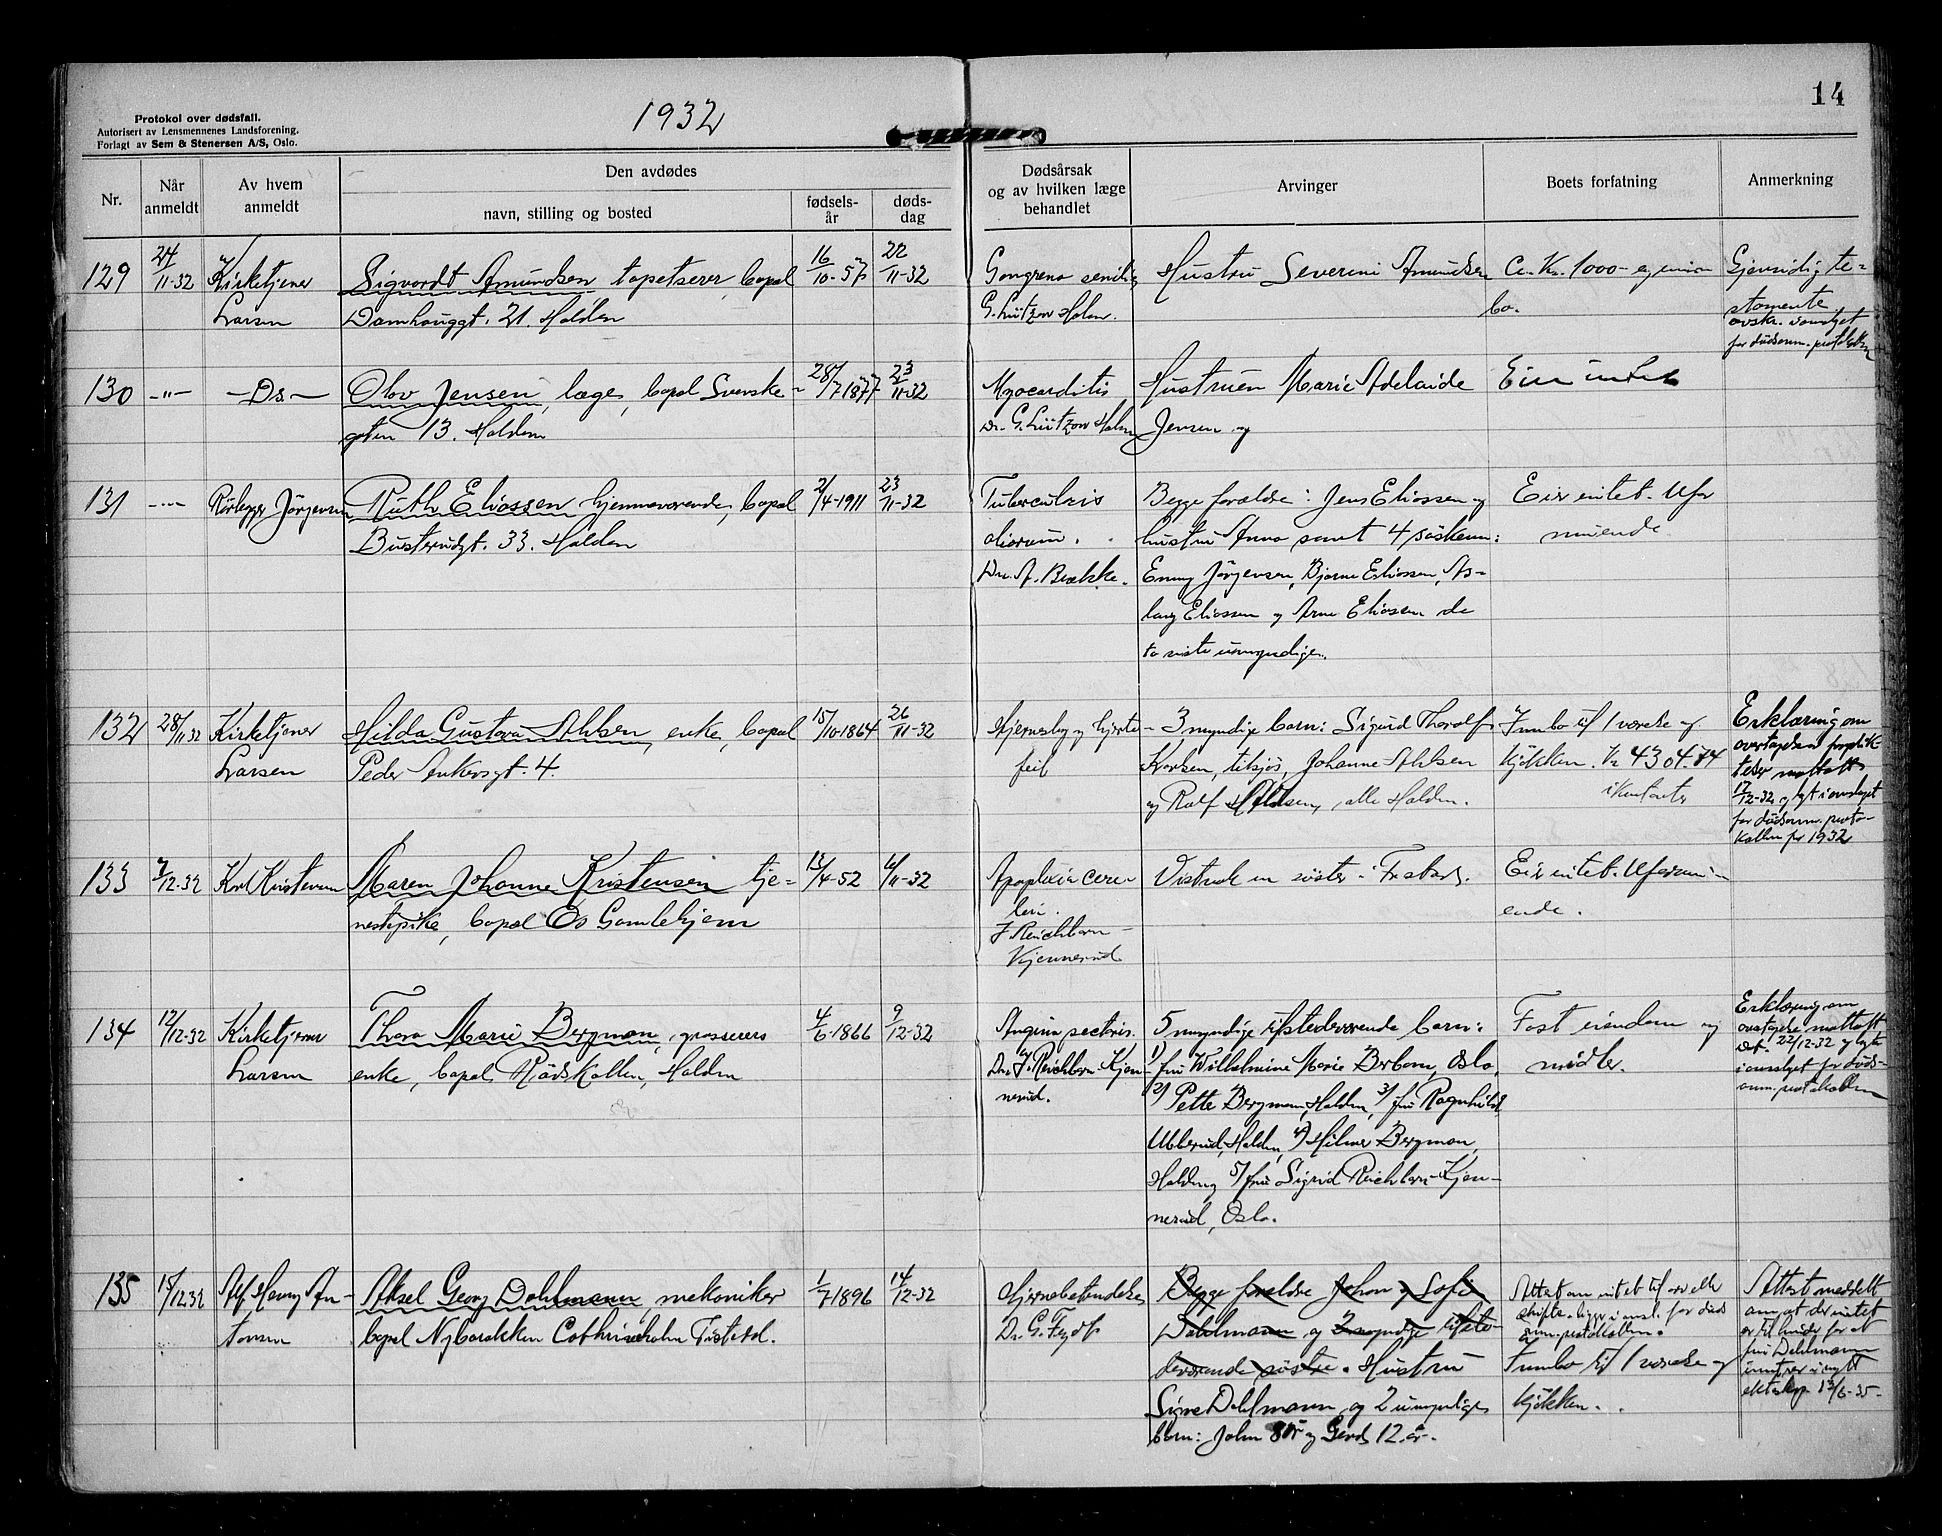 Protokol over dødsfall.
Autorisert av Lensmennenes Landsforening.
Forlagt av Sem & Stenersen A/S, Oslo.
1932
14
Nr.
Når anmeldt
Av hvem anmeldt
Den avdødes
navn, stilling og bosted
fødsels-
år
døds-
dag
Dødsårsak
og av hvilken læge
behandlet
Arvinger
Boets forfatning
Anmerkning
129
24/11-32
Kirketjener
Larsen
Sigvardt Amundsen tapetserer, bopal
Damhauggt. 21. Halden
16/10-57
22/11-32
Gangrena senilis
G. Lützow Holm.
Hustru Severine Amundsen
Ca. Kr. 1000-
bo.
Gjensidig te-
stamente
avskr. vanslget
for dødsanm. protokollen
130
-"-
-Ds-
Olav Jensen, læge, bopal Svenske-
gaten 13. Halden
28/7-1877
23/11-32
Myocarditis
Dr. G. Lützow Holm
Hustruen Marie Adelaide
Jensen og
Eier intet
131
-"-
Rørlegger Jörgensen
Ruth Eliassen hjemmeværende, bopal
Busterudgt. 33. Halden
21/4-1911
23/11-32
Tuberculosis
Dr. A. Brekke.
Begge forældre: Jens Eliassen og
hustru Anna samt 4 søsken:
Enny Jörgensen, Bjarne Eliassen, As-
laug Eliassen og Arne Eliassen de
to siste umyndige.
Eier intet. Ufor
muende
132
28/11 32
Kirketjener
Larsen
Hilda Gustava Ahlsen, enke, bopal
Peder Ankersgt. 4.
15/10-1864
26/11-32
Hjerneslag og hjerte-
feil
3 myndige barn: Sigurd Thoralf
Karlsen, tilsjøs, Johanne Ahlsen
og Ralf Ahlsen, alle Halden.
Innbo til 1 værelse og
kjøkken. Kr. 4304.74
i kontanter
Erklæring om
overtagelsen forplik-
telser mottatt
17/12-32, og lgt i omslaget
for dødsanm. proto-
kollen for 1932
133
7/12-32
Karl Kristensen
Maren Johanne Kristensen tje-
nestepike, bopal Os Gamlehjem
13/4-52
6/11-32
Apoplexia cere-
bri.
J. Reichborn-
Kjennerud
Vistnok en søster i Fr.stad.
Eier intet. Uformu-
ende.
134
12/12-32
Kirketjener
Larsen
Thora Marie Bergman, grosserers
enke, bopal Rödskollen, Halden
4/6-1866
9/12-32
Angina pectoris.
Dr. J. Reichborn-Kjen-
nerud.
5 myndige tilstedeværende barn:
1/ fru Wilhelmine Marie Orbom, Oslo,
2) Petter Bergman, Halden, 3/ fru Ragnhild
Ubberud, Halden, 4) Hilmer Bergman,
Halden og 5/ fru Sigrid Reichborn-Kjen-
nerud, Oslo.
Fast eiendom og
midler.
Erklæring om
overtagelse mottatt,
dat. 22/12-32 og lagt
i omslaget for døds-
anm. protokollen
135
15/12 32
Alf Henry An-
tonsen
Aksel Georg Dahlmann, mekaniker
bopal Nybrakken Cathrineholm Tistedal.
1/7-1896
14/12-32
Hjernebetendelse
Dr. G. Feydt
Begge foreldre Johan og Sofie
Dahlmann og 2 myndige tilste-
deværende søstre. Hustru
Signe Dahlmann og 2 umyndige
barn: John 8 år og Gerd 12 år.
Attest om intet til arv eller
skifte ligger i omsl. for døds
anm. protokollen.
Innbo til 1 værelse og
kjøkken.
Attest meddelt
om, at der intet
er til hinder for at
fru Dahlmann
inntrer i nytt
ekteskap 13/6-35-